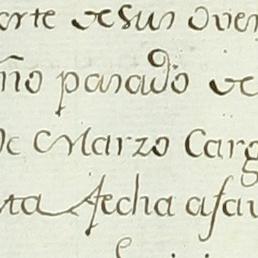 orte de sus Oven
ño pasado de
de Marzo Carg
ta fecha afav